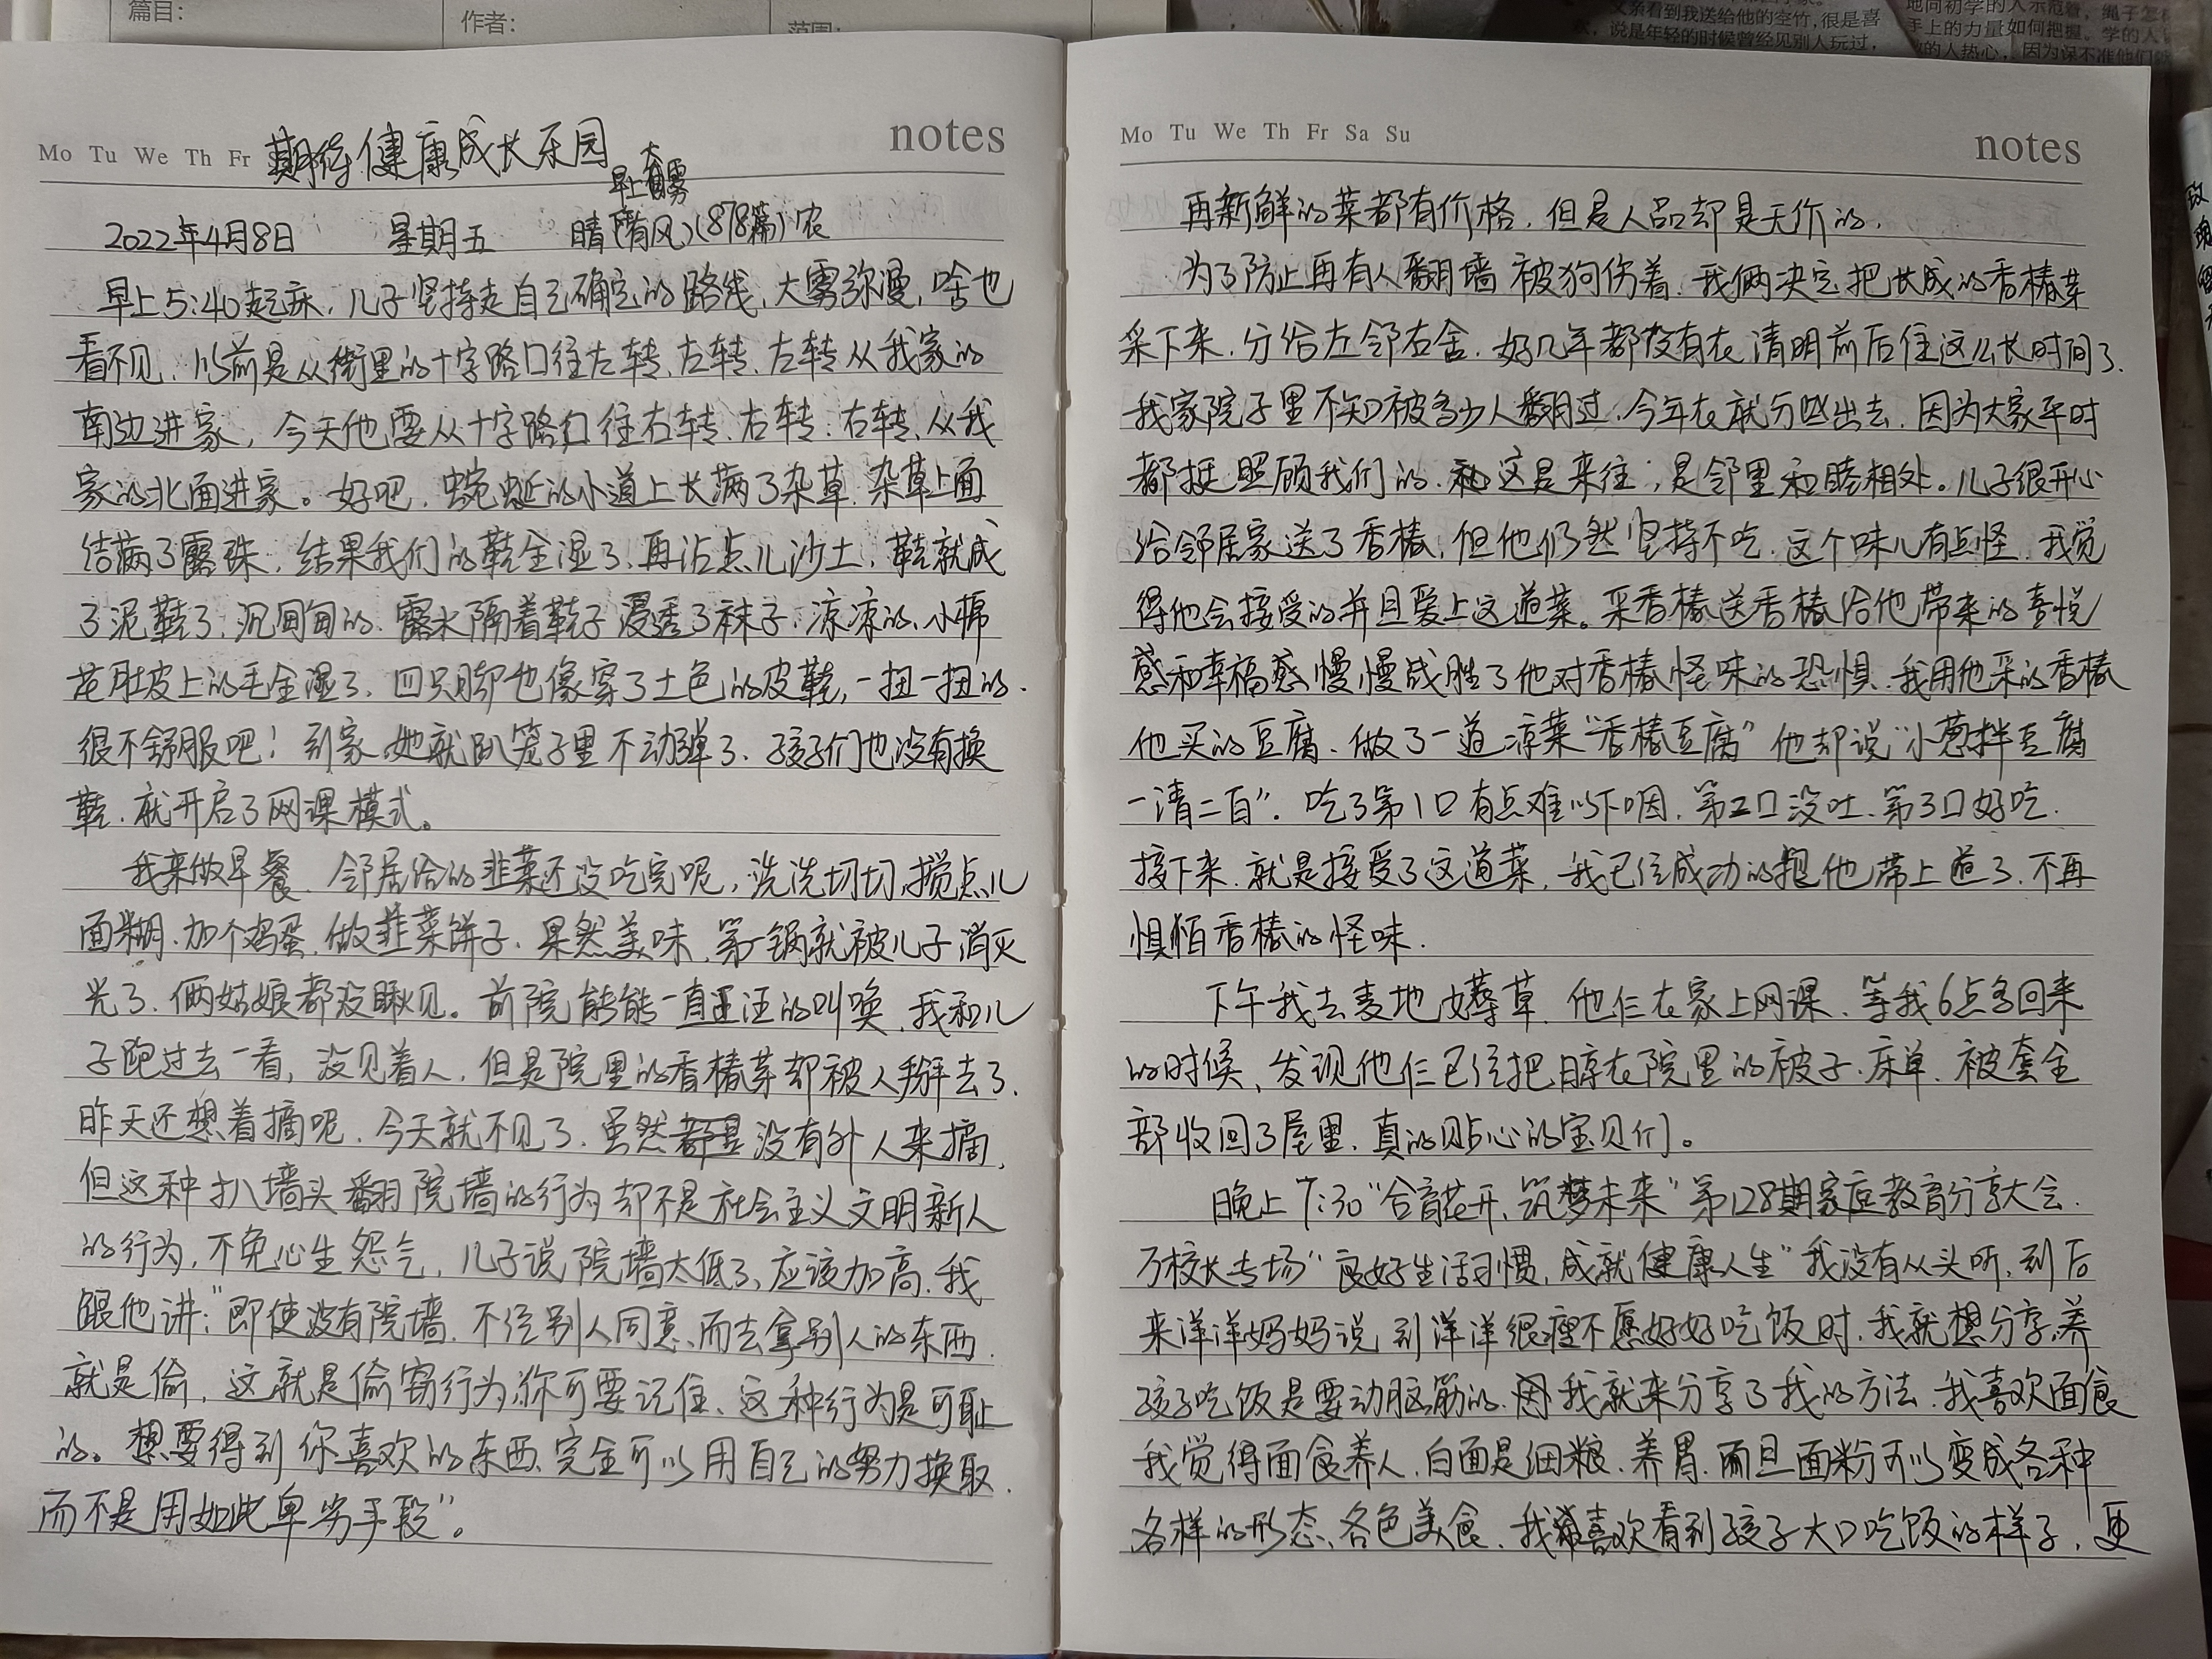 篇目：
作者：
范围：
父亲看到我送给他的空竹，很是喜
欢，说是年轻的时候曾经见别人玩过，
地向初学的人示范着，绳子怎
手上的力量如何把握。学的人
的人热心，因为误不准他们
Mo Tu We Th Fr
期待健康成长乐园
notes
早上有大雾
2022年4月8日 星期五 晴(有风)(878篇)农
早上5:40起床，儿子坚持走自己确定的路线，大雾弥漫，啥也
看不见，以前是从街里的十字路口往左转、左转、左转从我家的
南边进家，今天他要从十字路口往右转、右转、右转、从我
家的北面进家。好吧，蜿蜒的小道上长满了杂草，杂草上面
结满了露珠，结果我们的鞋全湿了，再沾点儿沙土，鞋就成
了泥鞋了，沉甸甸的，露水隔着鞋子浸透了袜子，凉凉的，小棉
花肚皮上的毛全湿了，四只脚也像穿了土色的皮鞋，一扭一扭的，
很不舒服吧！到家，她就趴笼子里不动弹了，孩子们也没有换
鞋，就开启了网课模式。
我来做早餐，邻居给的韭菜还没吃完呢，洗洗切切，搅点儿
面糊，加个鸡蛋，做韭菜饼子，果然美味，第一锅就被儿子消灭
光了，俩姑娘都没瞅见。前院能能一直汪汪的叫唤，我和儿
子跑过去一看，没见着人，但是院里的香椿芽却被人掰去了，
昨天还想着摘呢，今天就不见了，虽然都是没有外人来摘，
但这种扒墙头翻院墙的行为却不是社会主义文明新人
的行为，不免心生怨气，儿子说院墙太低了，应该加高，我
跟他讲：“即使没有院墙，不经别人同意，而去拿别人的东西，
就是偷，这就是偷窃行为，你可要记住，这种行为是可耻
的。想要得到你喜欢的东西，完全可以用自己的努力换取，
而不是用如此卑劣手段”。
Mo Tu We Th Fr Sa Su
notes
再新鲜的菜都有价格，但是人品却是无价的，
为了防止再有人翻墙被狗伤着，我俩决定把长成的香椿芽
采下来，分给左邻右舍，好几年都没有在清明前后住这么长时间了，
我家院子里不知被多少人翻过，今年在就分些出去，因为大家平时
都挺照顾我们的，这是来往；是邻里和睦相处。儿子很开心
给邻居家送了香椿，但他仍然坚持不吃，这个味儿有点怪，我觉
得他会接受的并且爱上这道菜。采香椿送香椿给他带来的喜悦
感和幸福感慢慢战胜了他对香椿怪味的恐惧，我用他采的香椿
他买的豆腐，做了一道凉菜“香椿豆腐”他却说“小葱拌豆腐
一清二白”，吃了第1口有点难以下咽，第2口没吐，第3口好吃，
接下来，就是接受了这道菜，我已经成功的把他带上道了，不再
惧怕香椿的怪味，
下午我去麦地薅草，他仨在家上网课，等我6点多回来
的时候，发现他仨已经把晾在院里的被子、床单、被套全
部收回了屋里，真的贴心的宝贝们。
晚上7:30“合育花开，筑梦未来”第128期家庭教育分享大会，
万校长专场“良好生活习惯，成就健康人生”我没有从头听，到后
来洋洋妈妈说到洋洋很瘦不愿好好吃饭时，我就想分享，养
孩子吃饭是要动脑筋的，我就来分享了我的方法，我喜欢面食
我觉得面食养人，白面是细粮，养胃，而且面粉可以变成各种
各样的形态、各色美食，我喜欢看到孩子大口吃饭的样子，更